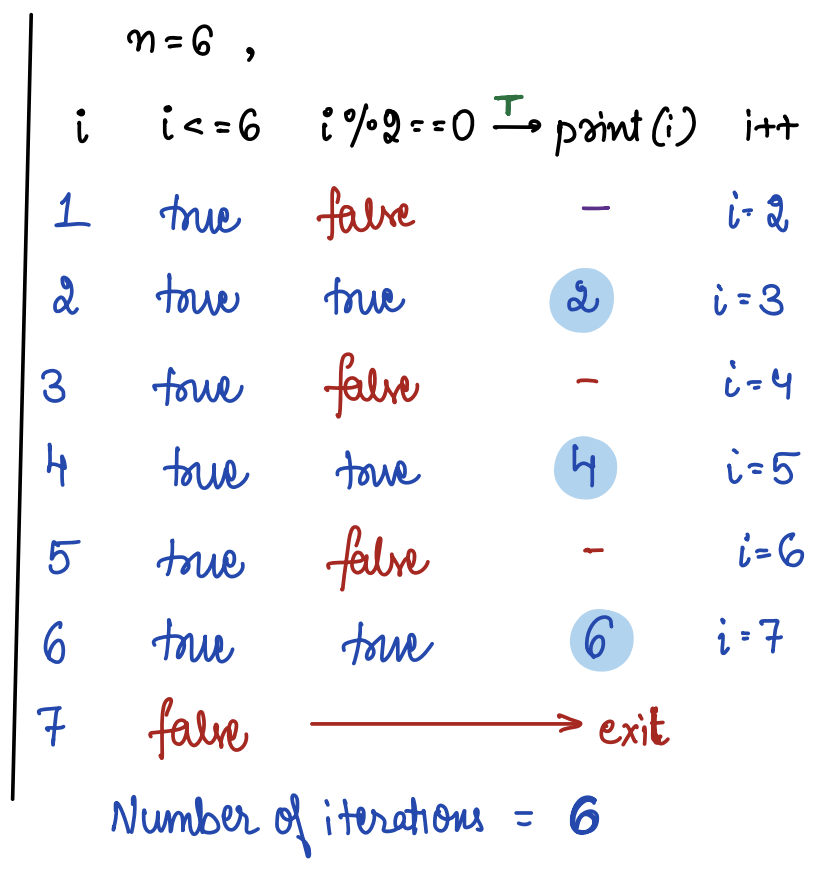 n = 6 ,
i i <= 6 i % 2 == 0 T → print(i) i++
1 true false - i = 2
2 true true 2 i = 3
3 true false - i = 4
4 true true 4 i = 5
5 true false - i = 6
6 true true 6 i = 7
7 false → exit
Number of iterations = 6